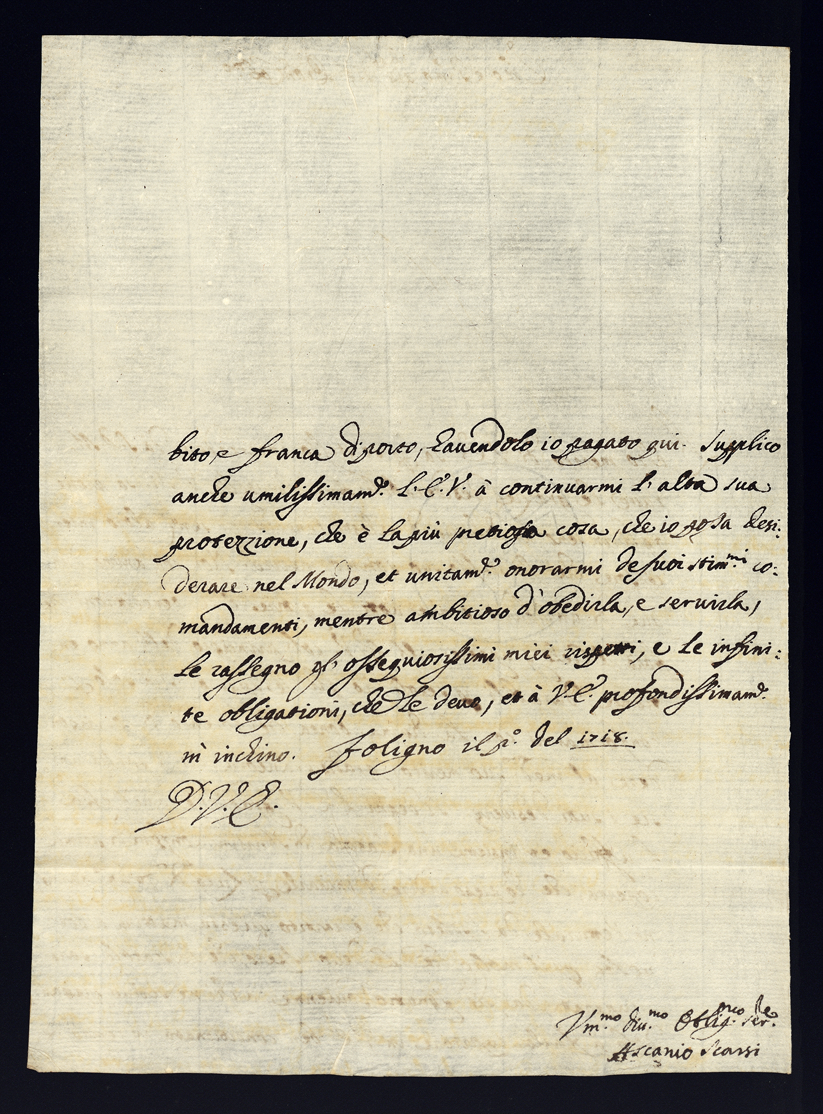 bito, e franca di porto, havendolo io pagato qui. Supplico
anche umilissimam.te l'E.V. à continuarmi l'alta sua
protezzione, che è la più pretiosa cosa, che io possa desi:
derare nel Mondo, et unitam.te onorarmi de suoi stim.mi co:
mandamenti, mentre ambitioso d'obedirla, e servirla,
le rassegno gl'ossequiosissimi miei rispetti, e le infini:
te obligationi, che le devo, et à V.E. profondissimam.te
m'inchino. Foligno il p.o del 1718.
D.V.E.
Um.mo div.mo Oblig.mo ser.re
Ascanio Scarsi